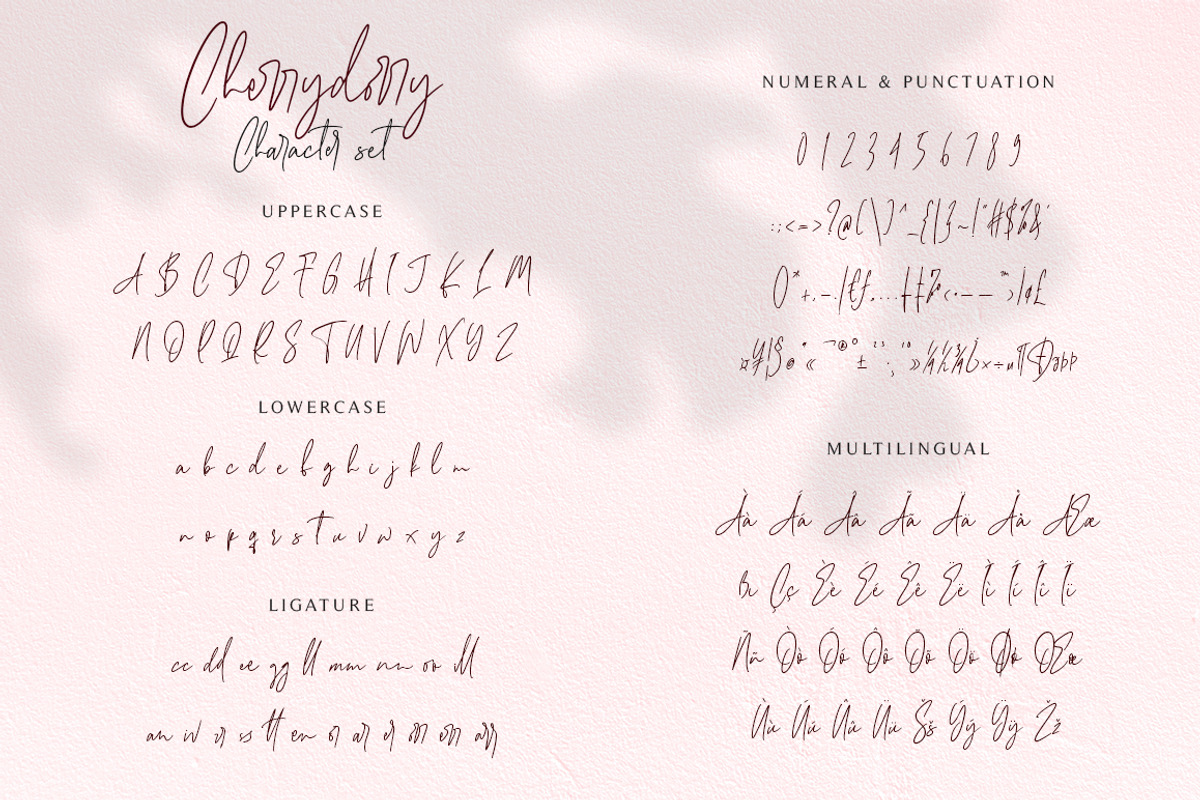 Cherrydorry
Character set
UPPERCASE
A B C D E F G H I J K L M
N O P Q R S T U V W X Y Z
LOWERCASE
a b c d e f g h i j k l m
n o p q r s t u v w x y z
LIGATURE
cc dd ee gg ll mm nn oo ill
an ir ss tt en or ar er orr err arr
NUMERAL & PUNCTUATION
0 1 2 3 4 5 6 7 8 9
: ; < = > ? @ ( \ ) ^ _ { | } ~ ! " # $ % & '
( ) * + , - . / € ƒ „ … † ‡ ‰ ‹ • – — ™ › ¢ £
¤ ¥ ¦ § © « ¬ ® ° ± ² ³ ¹ º » ¼ ½ ¾ ¿ × ÷ µ ¶ Ð ð Þ þ
MULTILINGUAL
Àà Áá Ââ Ãã Ää Åå Ææ
Çç Èè Éé Êê Ëë Ìì Íí Îî Ïï
Ññ Òò Óó Ôô Õõ Öö Øø Œœ
Ùù Úú Ûû Üü Šš Ýý Ÿÿ Žž